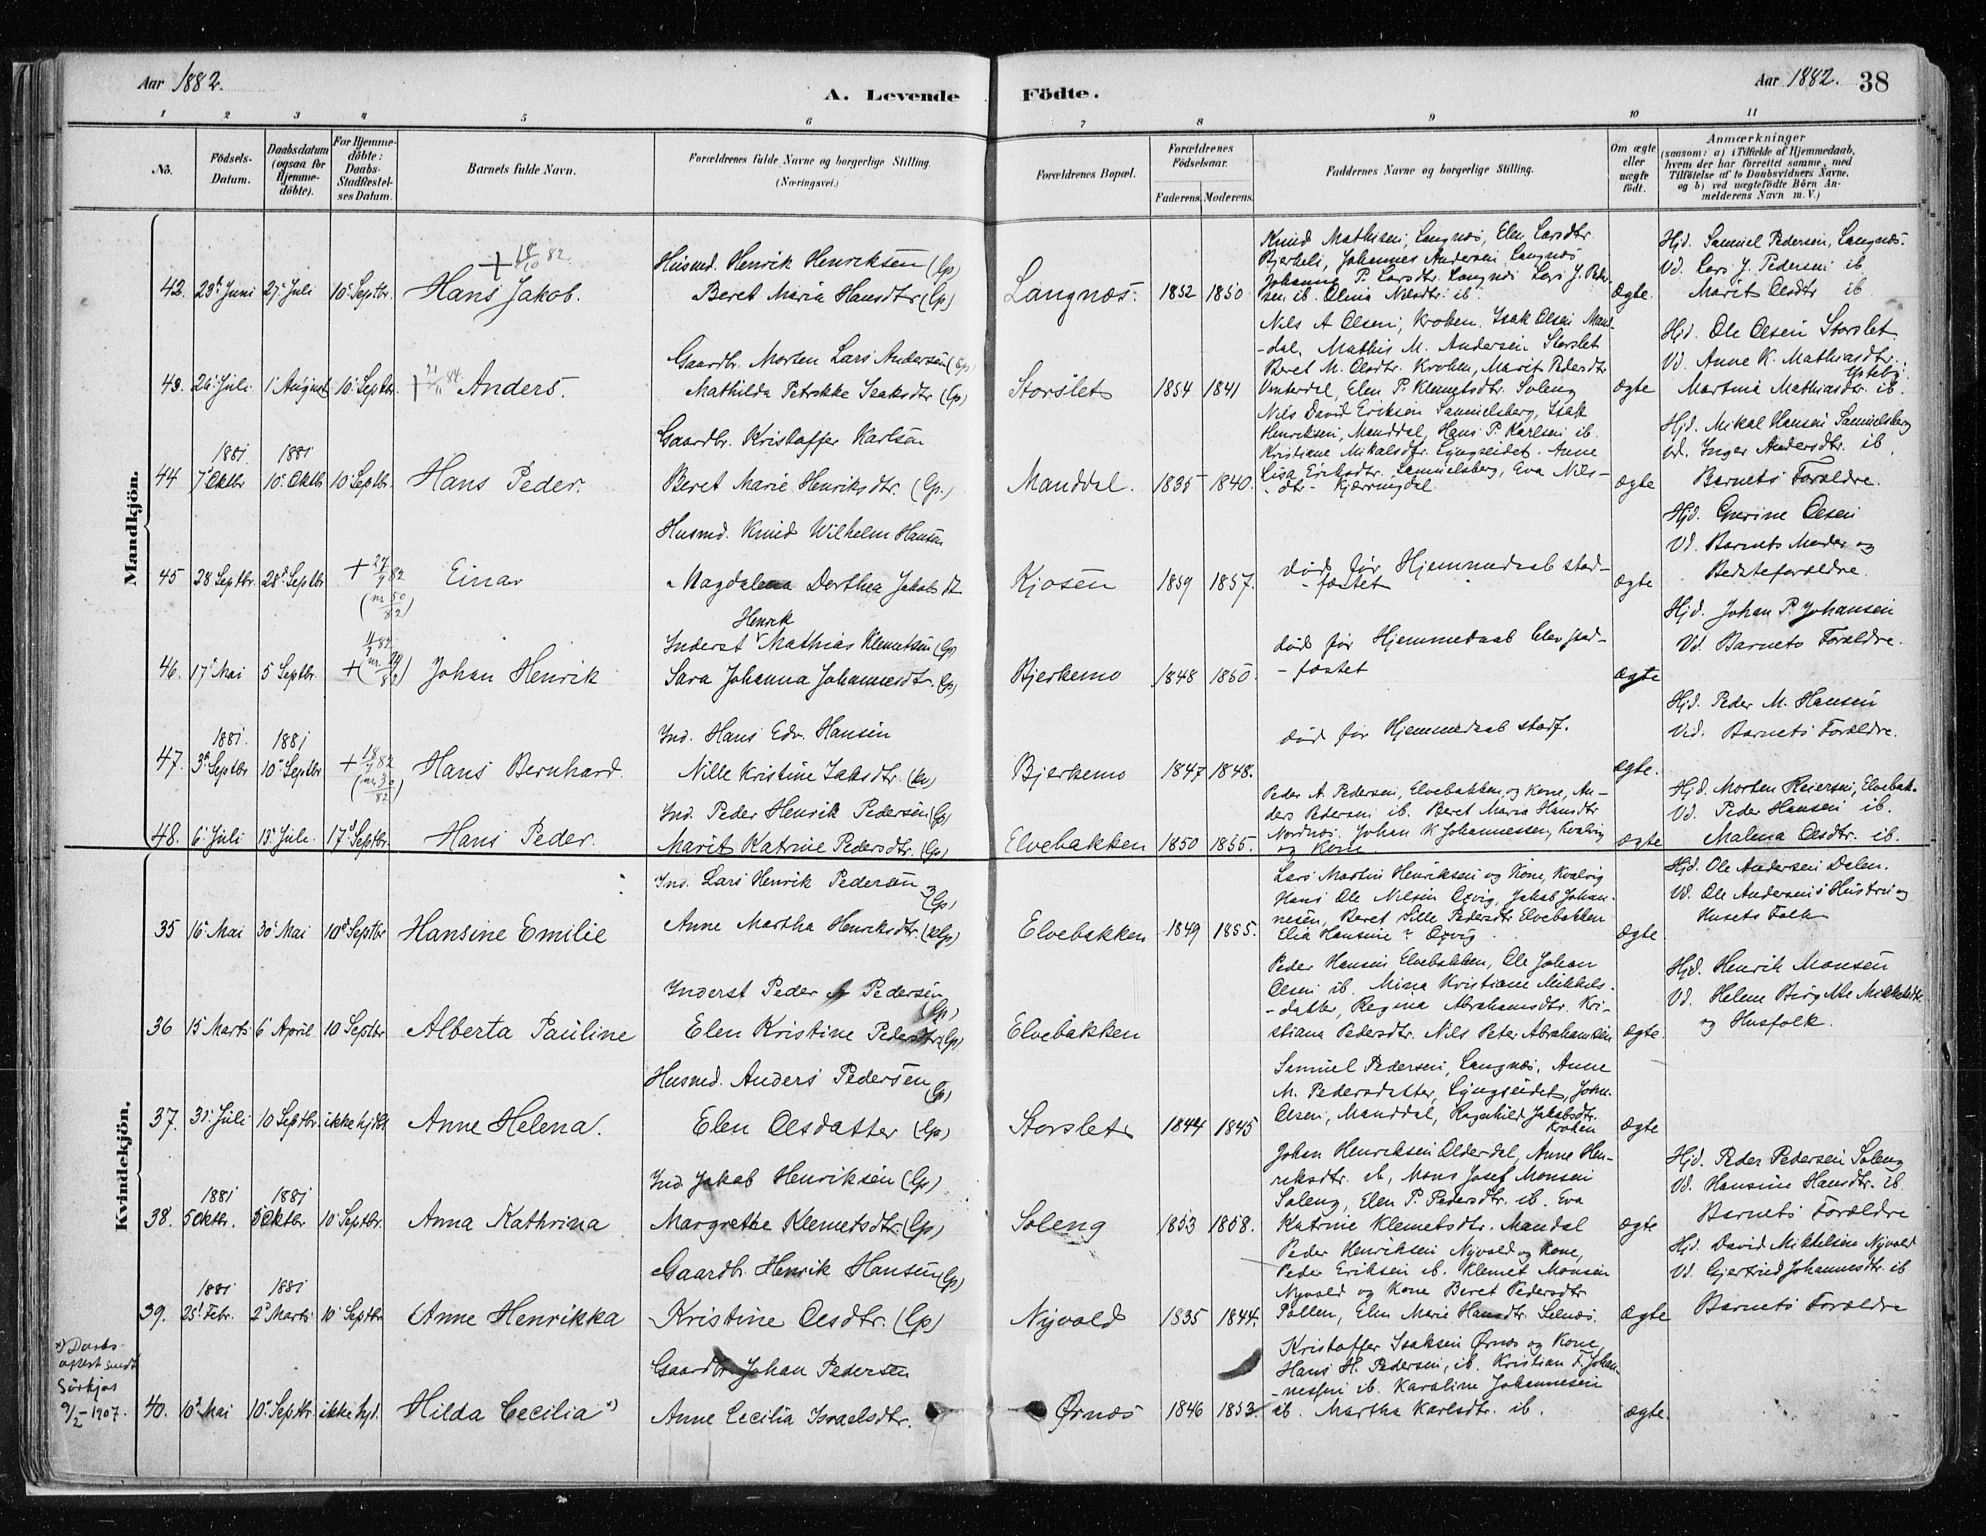 Aar 1882.
A. Levende Födte.
Aar 1882. 38
1 2 3 4 5 6 7 8 9 10 11
No.
Födsels-Datum.
Daabsdatum (ogsaa for Hjemme-döbte).
For Hjemme-döbte: Daabs-Stadfæstel-ses Datum.
Barnets fulde Navn.
Forældrenes fulde Navne og borgerlige Stilling. (Næringsvei.)
Forældrenes Bopæl.
Forældrenes Födselsaar.
Faderens. Moderens.
Faddernes Navne og borgerlige Stilling.
Om ægte eller uægte födt.
Anmærkninger
(saasom: a) i Tilfælde af Hjemmedaab, hvem der har forrettet samme, med Tilföielse af to Daabsvidners Navne, og b) ved uægtefödte Börn An-melderens Navn m. V.)
Mandkjön.
42. 23d Juni 27. Juli 10. Septbr. + 18/10 82. Hans Jakob.
Husmd. Henrik Henriksen (Lp)
Beret Maria Hansdtr (Lp)
Langnæs. 1852 1850
Knud Mathisen, Langnæs, Elen Larsdtr.
Bjerkeli, Johannes Andersen Langnæs
Johanna P. Larsdtr. Langnæs Lars J. Peder-
sen ib. Olina Nilsdtr. ib.
Ægte.
Hjd. Samuel Pedersen, Langnæs.
Vd. Lars J. Pedersen ib
Marit Olsdtr ib
43. 26. Juli 1. August 10. Septbr. Anders.
Gaardbr. Morten Lars Andersen (Lp)
Mathilda Petrikke Isaksdtr (Lp)
Storslet 1854 1841
Nils A Olsen, Kroken. Isak Olsen Man-
-dal, Mathis M. Andersen Storslet
Beret M. Olsdtr. Kroken, Marit Pedersdtr
Vinterdal, Elen P. Klemetsdtr. Soleng
ægte
Hjd. Ole Olsen Storslet
Vd. Anne K. Mathiasdtr.
Martina Mathiasdtr. ib.
44 1881. 7. Oktbr 1881 10. Oktbr 10. Septbr. Hans Peder.
Gaardbr. Kristoffer Karlsen
Beret Marie Henriksdtr. (Lp.)
Manddal. 1835 1840.
Nils David Eriksen Samuelsberg, Isak
Henriksen, Manddal, Hans P. Karlsen ib.
Kristiane Mikalsdtr. Lyngseidet. Anne
Lisa Eriksdtr. Samuelsberg, Eva Nils-
-dtr- Kjerringdal.
ægte
Hjd. Mikal Hansen Samuelsberg
Vd. Inger Andersdtr. ib.
Barnets Forældre.
45 28 Septbr. 28d Septbr + Einar
Husmd. Knud Wilhelm Hansen
Magdalena Dorthea Jakobsdt
Kjosen 1859 1857.
død før Hjemmedaab stad-
-fæstet
ægte
Hjd. Oluf Olsen
Vd. Barnets Moder og
Bedsteforældre.
46. 17. Mai 5 Septbr. + Johan Henrik
Henrik
Inderst Mathias Klemetsen (Lp)
Sara Johanna Johannesdtr. (Lp)
Bjerkemo 1848 1850.
død før Hjemmedaab blev stad-
-fæstet
ægte
Hjd. Johan P. Johansen
Vd. Barnets Forældre.
47. 1881. 3d Septbr 1881 10. Septbr + Hans Bernhard.
Ind. Hans Edv. Hansen
Nille Kristine Isaksdtr. (Kn)
Bjerkemo 1847 1848.
død før Hjemmedaab stadf.
ægte.
Hjd. Peder M. Hansen
Vid. Barnets Forældre.
48. 6. Juli 13. Juli. 17d Septbr. Hans Peder.
Ind. Peder Henrik Pedersen (Lp)
Marit Katrine Pedersdtr. (Lp)
Elvebakken 1850 1855.
Peder A. Pedersen, Elvebakken og Kone, An-
ders Pedersen ib. Beret Maria Hansdtr
Nordnæs. Johan K Johannessen, Kvalvig
og Kone
ægte
Hjd. Morten Reiersen, Elvebak.
Vd. Peder Hansen ib.
Malena Olsdtr. ib.
Kvindekjön.
35 16. Mai 30. Mai 10d Septbr Hansine Emilie
Ind. Lars Henrik Pedersen (Lp)
Anne Martha Henriksdtr. (Lp)
Elvebakken 1849 1855.
Lars Martin Henriksen og Kone, Kvalvig
Hans Ole Nilsen Oxvig, Jakob Johan-
nesen, Beret Sille Pedersdtr Elvebakken
Elia Hansine ? Oxvig.
ægte
Hjd. Ole Andersen Dalen.
Vd. Ole Andersens Hustru og
Husets Folk
36 15 Marts 6. April 10 Septbr. Alberta Pauline
Inderst Peder Pedersen (Lp)
Elen Kristine Pedersdtr (Lp)
Elvebakken
Peder Hansen Elvebakken, Ole Johan
Olsen ib. Mina Kristiane Mikkels-
-datter, Regina Abrahamsdtr. Kri-
stiana Pedersdtr. Nils Peter Abrahamsen
ægte.
Hjd. Henrik Monsen
Vd. Helene Mikkelsdtr.
og Husfolk.
37. 31. Juli 10 Septbr. ikke hjdt. Anne Helena.
Husmd. Anders Pedersen (Lp)
Elen Olsdatter (Lp)
Storslet 1844 1845
Samuel Pedersen, Langnæs, Anne
M. Pedersdatter, Lyngseidet, John
Olsen, Manddal, Ragnhild Jakobsdtr.
Kroken
ægte
38. 1881 5 Oktbr. 1881 5 Oktbr 10. Septbr. Anna Kathrina
Ind. Jakob Henriksen (Lp)
Margrethe Klemetsdtr. (Lp)
Soleng 1853 1858.
Johan Henriksen Olderdal, Anne Hen-
riksdtr. ib, Mons Josef Monsen
Soleng, Elen P. Pedersdtr. ib. Eva
Katrine Klemetsdtr. Mandal
ægte
Hjd. Peder Pedersen Soleng
Vd. Hansine Hansdtr. ib.
Barnets Forældre
39. 1881 25. Febr. 1881 2. Marts 10. Septbr Anne Henrikka
Gaardbr. Henrik Hansen (Lp)
Kristine Olsdtr. (Lp)
Nyvold 1835 1844.
Peder Henriksen Nyvold og Kone,
Peder Eriksen ib. Klemet Monsen
Nyvold og Kone Beret Pedersdtr
Pollen, Elen Marie Hansdtr. Solnæs.
Ægte
Hjd. David Mikkelsen Nyvold
Vd. Gjertrud Johannesdtr. ib
Barnets Forældre
x) Daabs-
attest sendt
Sörkjos
9/2-1907.
40. 10d Mai 10. Septbr. ikke hjd. Hilda Cecilia x)
Gaardbr Johan Pedersen
Anne Cecilia Israelsdtr.
Ørnæs 1846 1853.
Kristoffer Isaksen Ørnæs og Kone,
Hans H. Pedersen, ib. Kristian F. Johan-
-nessen ib. Karoline Johannesen
ib. Martha Karlsdtr. ib.
ægte.